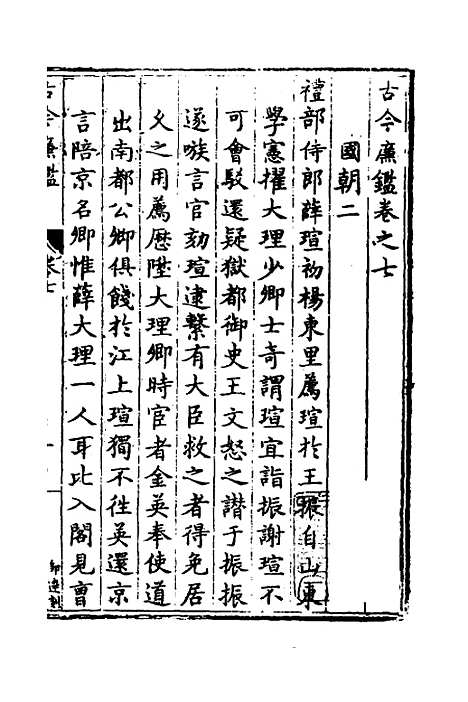 古今廉鑑卷之七
國朝二
禮部侍郎薛瑄初楊東里薦瑄於王振自山東
學憲擢大理少卿士奇謂瑄宜詣振謝瑄不
可會駁還疑獄都御史王文怒之譖于振振
遂嗾言官劾瑄逮繫有大臣救之者得免居
久之用薦歷陞大理卿時宦者金英奉使道
出南都公卿俱餞於江上瑄獨不往英還京
言陪京名卿惟薛大理一人耳比入閣見曹
古今廉鑑
卷七